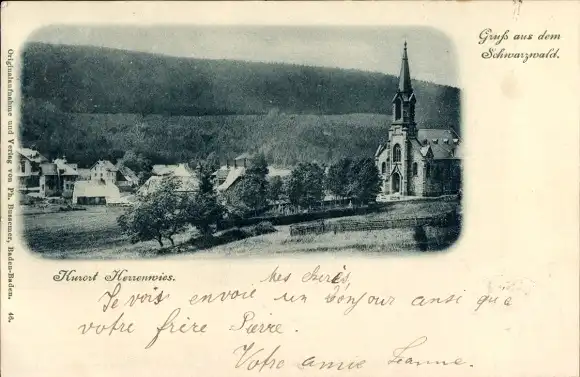 Gruß aus dem
Schwarzwald.
Originalaufnahme und Verlag von Ph. Bussemer, Baden-Baden. 46.
Kurort Herrenwies.
Mes chères,
Je vois envoie un bonjour ansi que
votre frère Pierre.
Votre amie Jeanne.